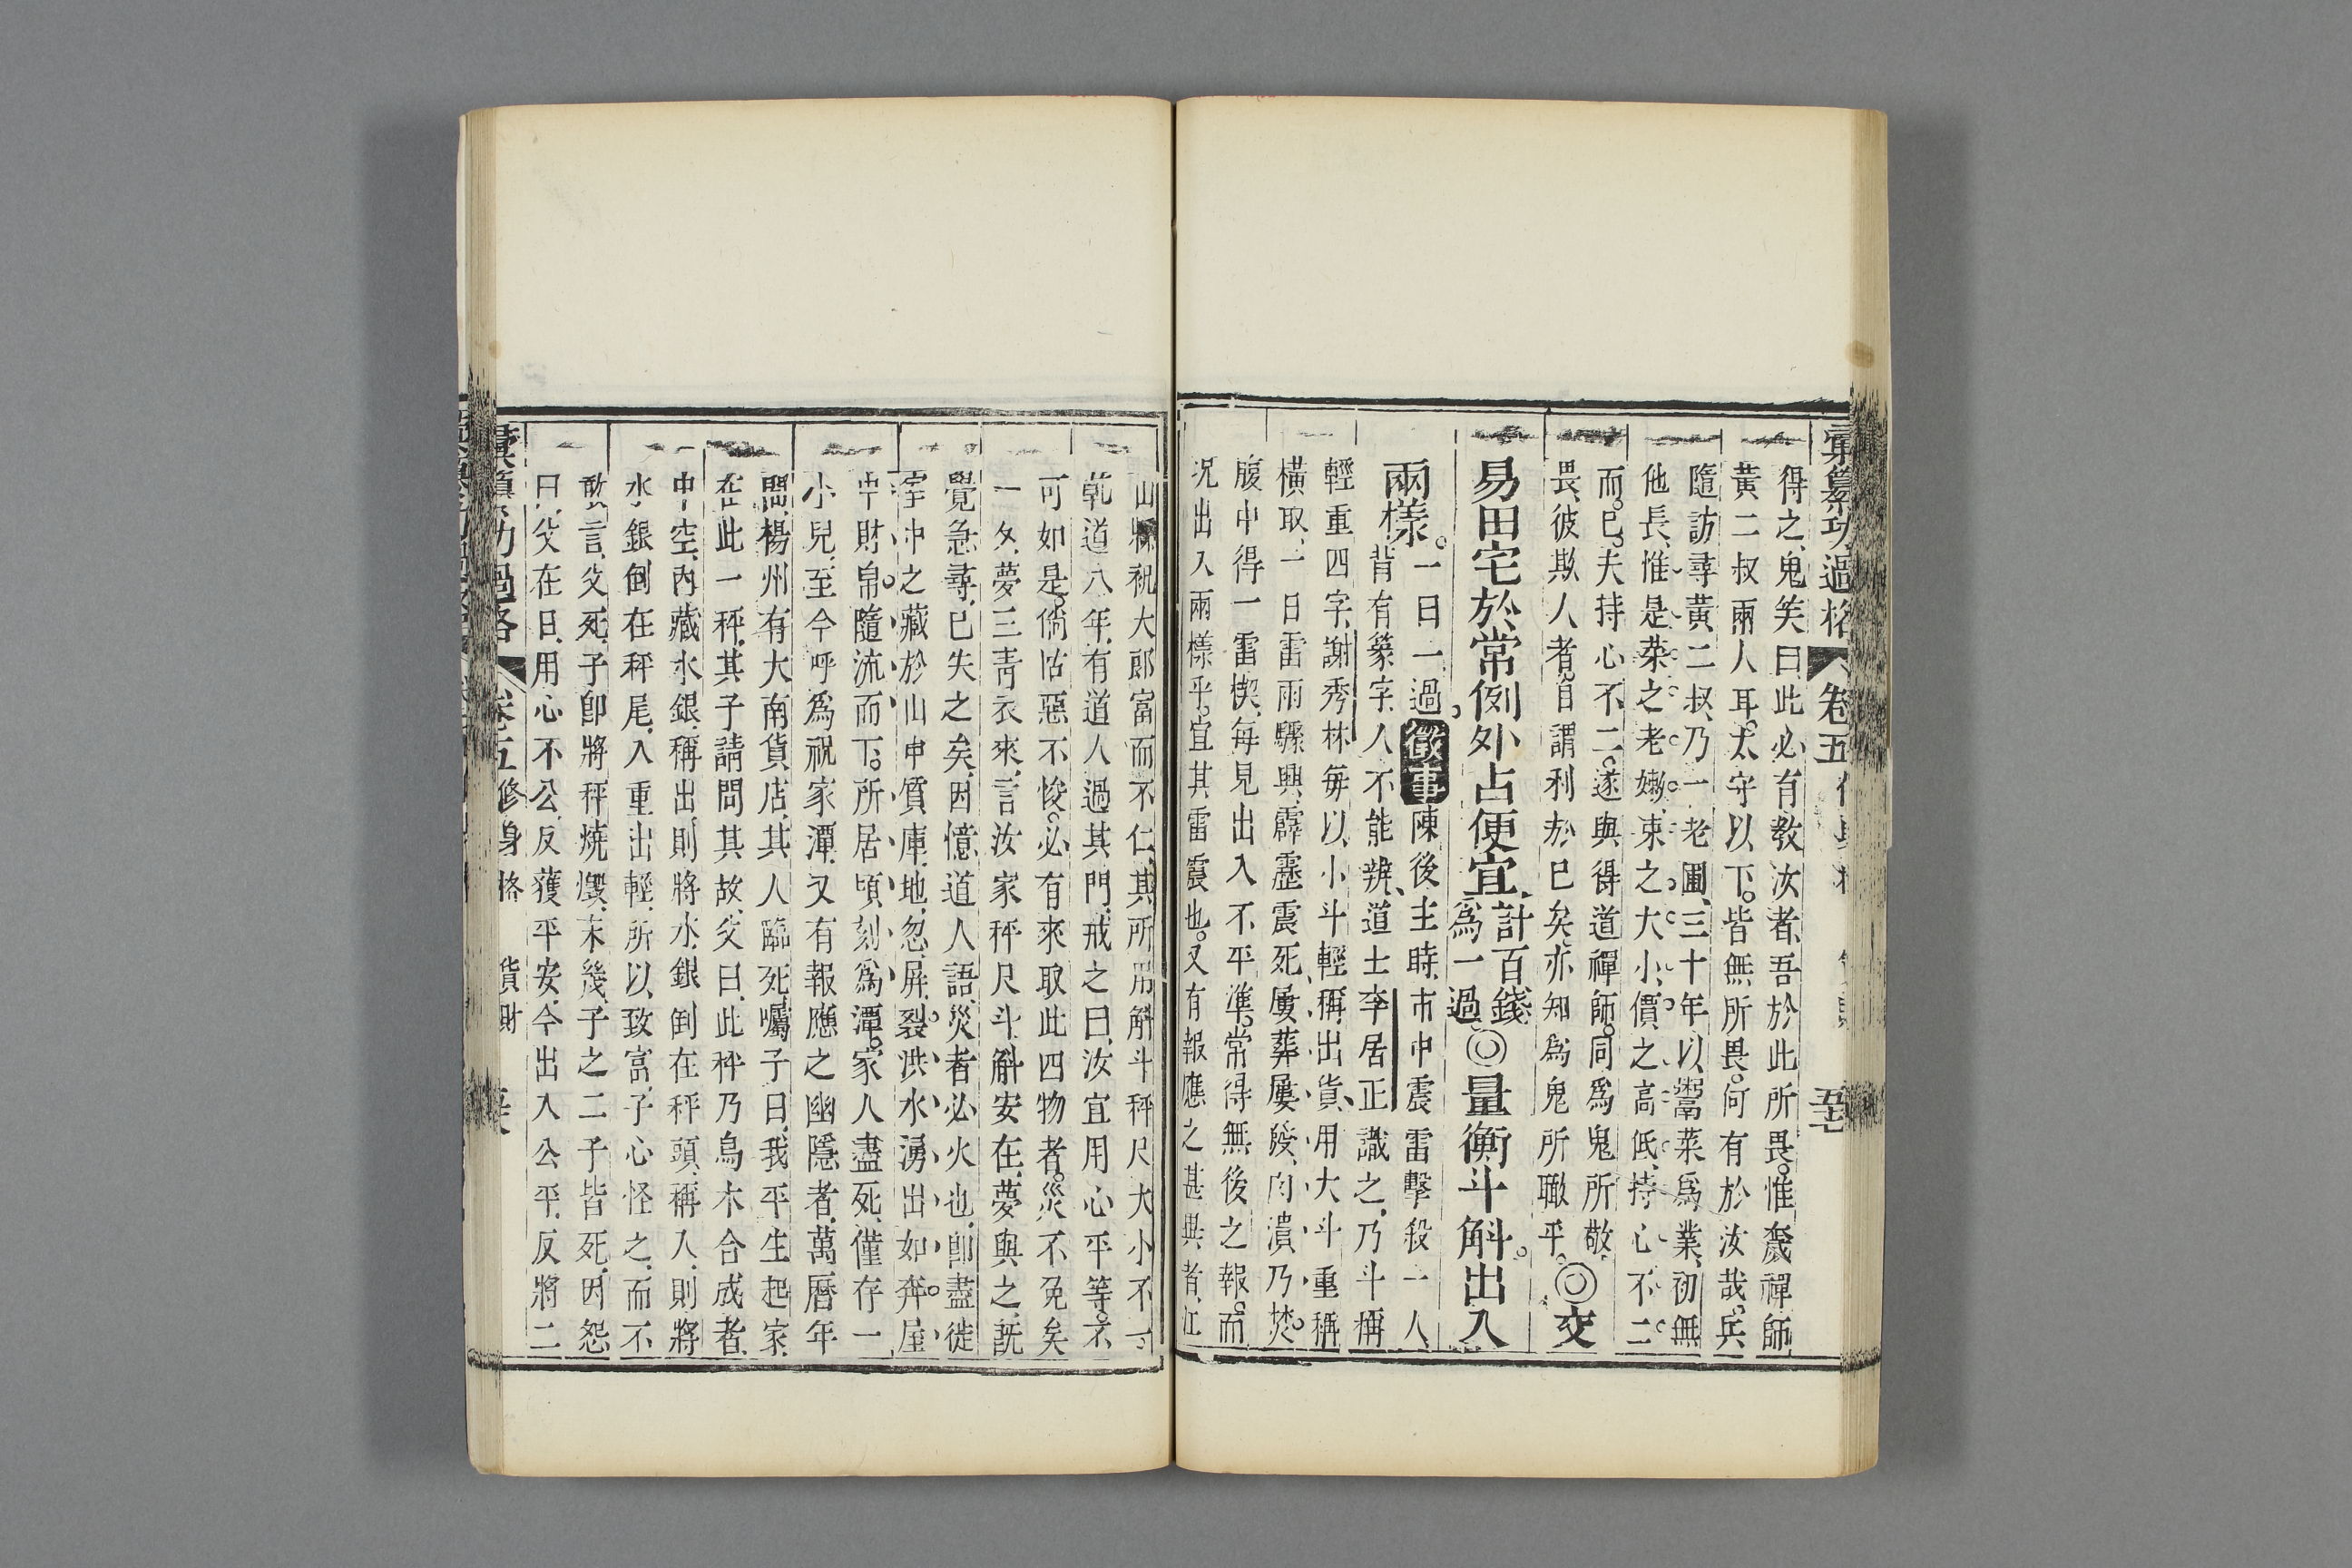 彙纂功過格 卷五
得之、鬼笑曰此必有教汝者、吾於此所畏。惟禪師
黃二叔兩人耳。太守以下。皆無所畏。何有於汝哉、兵
隨訪尋黃二叔、乃一老圃、三十年、以鬻菜爲業、初無
他長、惟是菜之老嫩、束之大小、價之高低、持心不二
而。已。夫持心不二。遂與得道禪師。同爲鬼所敬、
畏、彼欺人者、自謂利於己矣、亦知爲鬼所瞰乎。◎交
易田宅於常例外占便宜、計百錢爲一過。◎量衡斗斛。出入
兩樣。一日一過。徵事 陳後主時、市中震雷擊殺一人、
背有篆字、人不能辨、道士李居正識之、乃斗稱
輕重四字、謝秀林每以小斗輕稱出貨、用大斗重稱
橫取、一日雷雨驟興、霹靂震死、屢葬屢發、肉潰乃焚。
腹中得一雷楔、每見出入不平準。常得無後之報。而
況出入兩樣乎。宜其雷震也。又有報應之甚異者、江
山縣祝大郎富而不仁、其所用斛斗秤尺大小不一
乾道八年、有道人過其門、戒之曰、汝宜用心平等。不
可如是、倘怙惡不悛。必有來取此四物者。災不免矣
一夕、夢三青衣來、言汝家秤尺斗斛安在、夢與之、既
覺急尋、已失之矣、因憶道人語、災者必火也、卽盡徙
室中之藏於山中質庫、地忽屏裂。洪水湧出如奔。屋
中財。帛隨流而下。所居頃刻爲潭。家人盡死、僅存一
小兒、至今呼爲祝家潭、又有報應之幽隱者、萬曆年
間、楊州有大南貨店、其人臨死、囑子曰、我平生起家、
在此一秤、其子請問其故、父曰、此秤乃烏木合成者、
中空、內藏水銀、稱出、則將水銀倒在秤頭、稱入、則將
水銀倒在秤尾、入重出輕、所以致富、子心怪之、而不
敢言、父死、子卽將秤燒燬、未幾、子之二子皆死、因怨
曰、父在日、用心不公、反獲平安、今出入公平、反將二
彙纂功過格 卷五 修身格 貨財